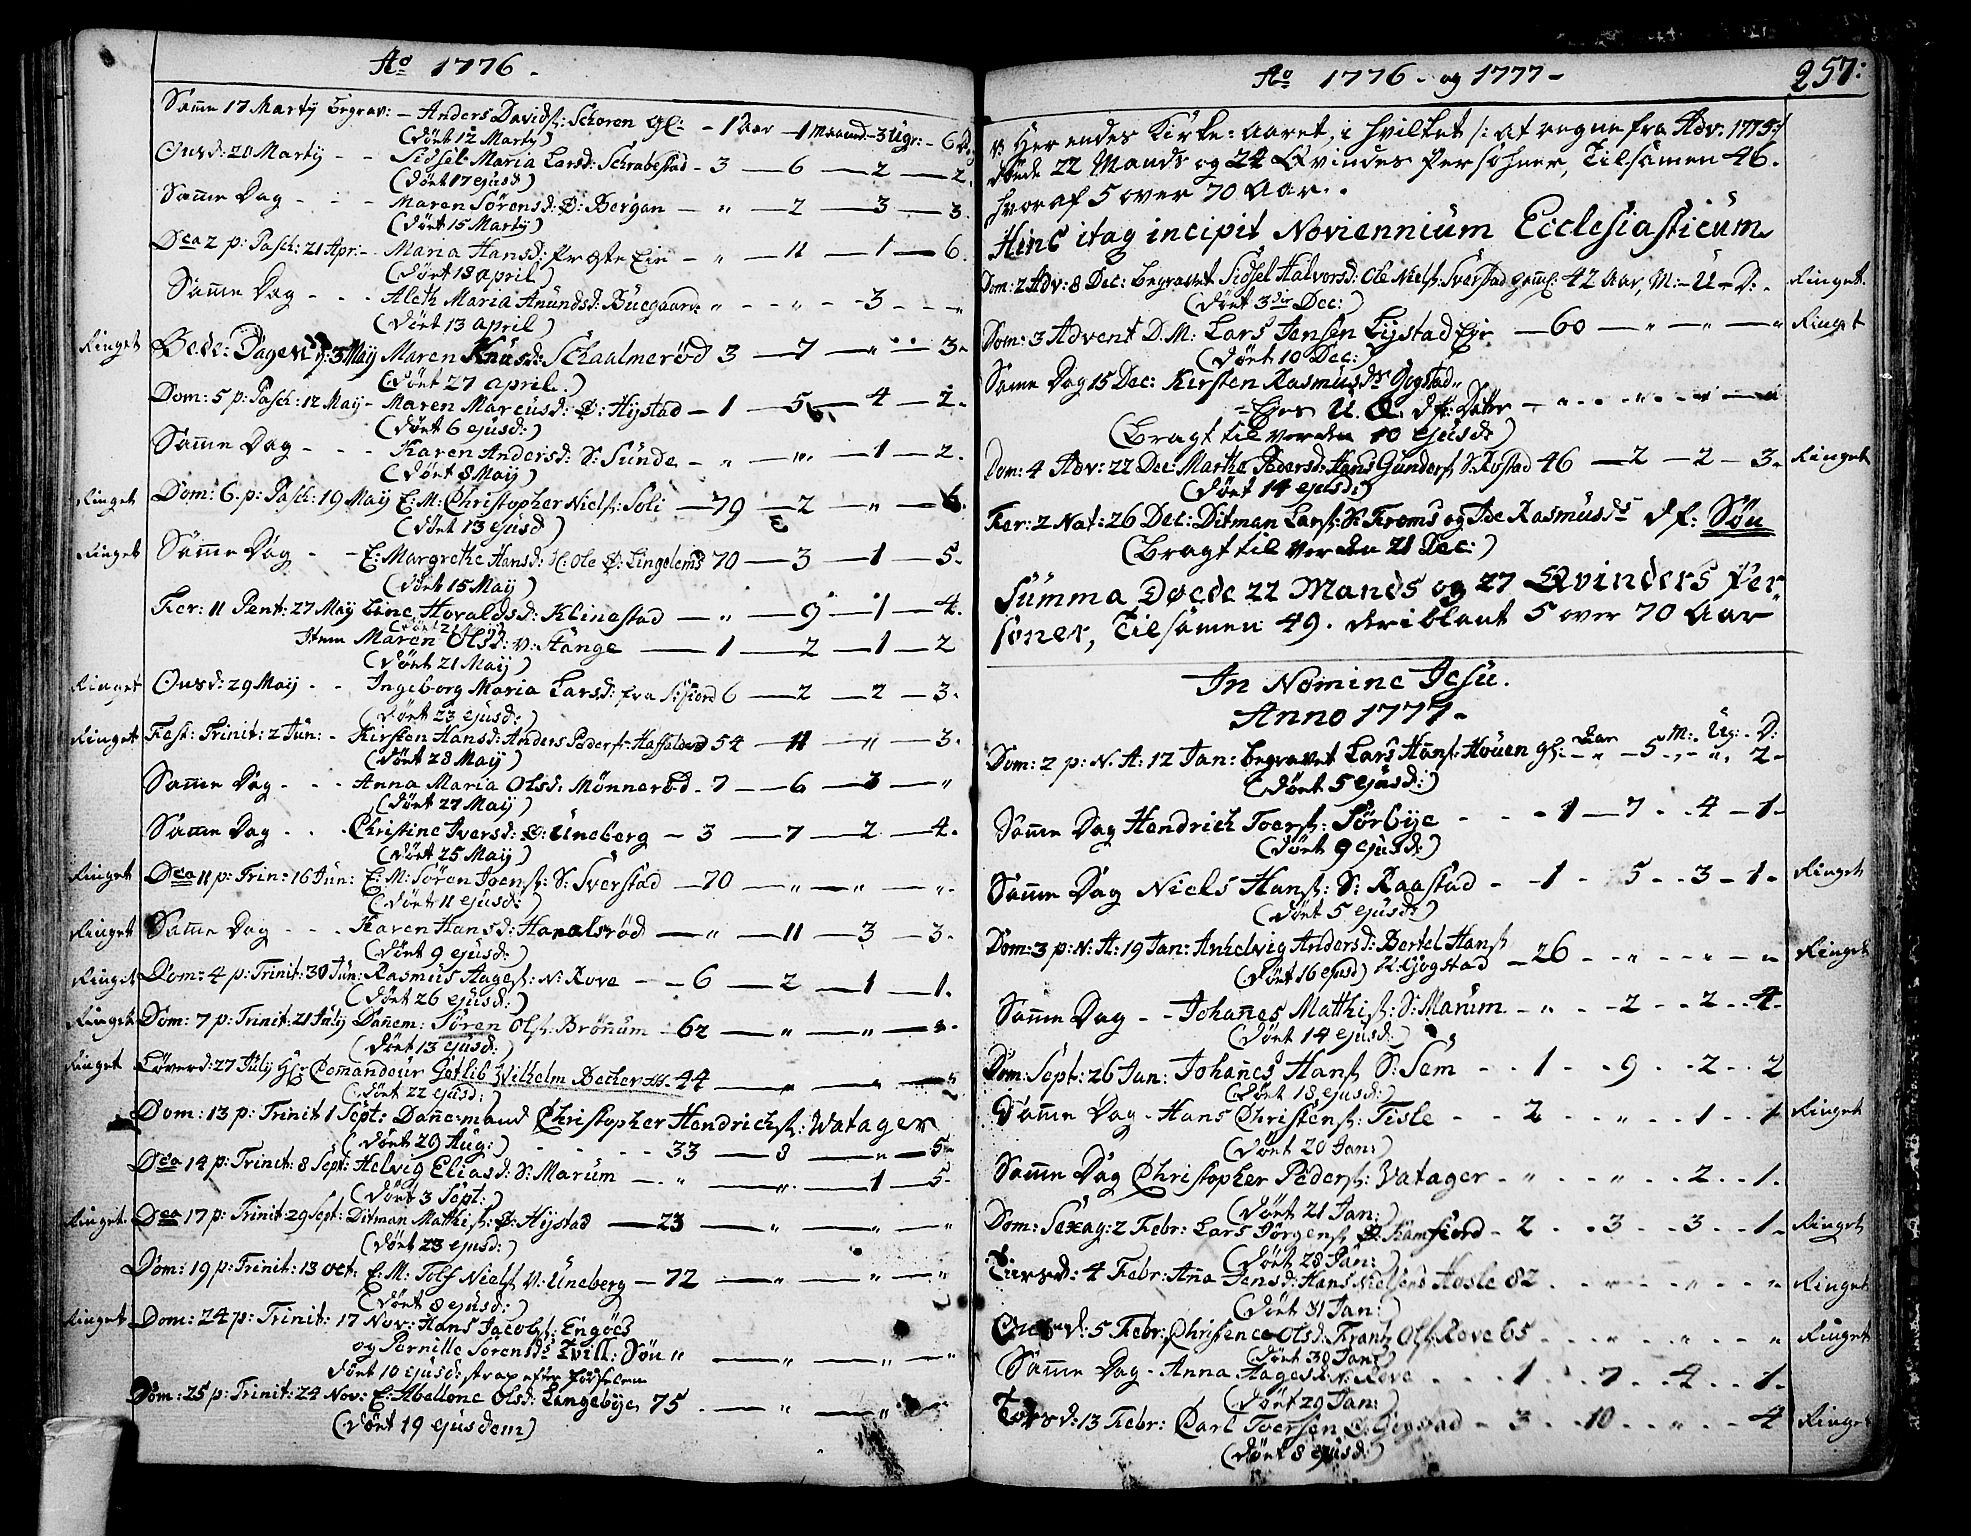 Aō 1776.
Samme 17 Martÿ Begrav: - Anders Davids: Schoren gl: - 1 Aar - 1 Maaned - 3 Ugr: - 6 D.
(døet 12 Martÿ)
Onsd: 20 Martÿ - - Sidsel Maria Larsd: Schrabestad - 3 - 6 - 2 - 2.
(døet 17 ejusd)
Samme Dag - - - Maren Sörensd: Ø: Bergan - „ - 2 - 3 - 3.
(døet 15 Martÿ)
Dca 2 p: Pasch: 21 Apr: - Maria Hansd: Præste Eie - „ - 11 - 1 - 6.
(døet 18 april)
Samme Dag - - - Aleth Maria Anundsd: Buegaard: „ - „ - 3 - „
(døet 13 april)
Ringet Bede-Dagen d: 3 Maÿ Maren Knusd: Schaalmerød 3 - 7 - „ - 3.
(døet 27 april.)
Dom: 5 p: Pasch: 12 Maÿ - Maren Marcusd: Ø: Hÿstad - 1 - 5 - 4 - 2.
(døet 6 ejusd:)
Samme Dag - - - Karen Andersd: S: Sunde - „ - „ - 1 - 2.
(døet 8 Maÿ)
Ringet Dom: 6 p: Pasch: 19 Maÿ E: M: Christopher Niels: Soli - 79 - 2 - „ - 6.
(døet 13 ejusd)
Ringet Samme Dag - - E: Margrethe Hansd: Hl: Ole Ø: Lingelems 70 - 3 - 1 - 5.
(døet 15 Maÿ)
Fer: 11 Pent: 27 Maÿ Line Hovaldsd: Klinestad - „ - 9 - 1 - 4.
Item Maren Olsd: V: Hange - 1 - 2 - 1 - 2
(døet 21 Maÿ)
Ringet Onsd: 29 Maÿ - - Ingeborg Maria Larsd: fra 6 - 2 - 2 - 3.
(døet 23 ejusd:)
Ringet Fest: Trinit: 2 Jun: - Kirsten Hansd: Anders Peders: 54 - 11 - „ - 3.
(døet 28 Maÿ)
Samme Dag - - - Anna Maria Olsd: Mønnerød - 7 - 6 - 3 - „
(døet 27 Maÿ)
Samme Dag - - - Christine Iversd: Ø: Uneberg - 3 - 7 - 2 - 4.
(døet 25 Maÿ)
Ringet Dca 11 p: Trin: 16 Jun: E: M: Sören Joens: S: Sverstad - 70 - „ - „ - „
(døet 11 ejusd:)
Ringet Samme Dag - - - Karen Hansd: Haralsrød - „ - 11 - 3 - 3.
(døet 9 ejusd:)
Ringet Dom: 4 p: Trinit: 30 Jun: Rasmus Aages: N: Rove - - 6 - 2 - 1 - 1.
(døet 26 ejusd:)
Ringet Dom: 7 p: Trinit: 21 Julÿ Danem: Sören Ols: Brønum - 62 - „ - „ - „
(døet 13 ejusd:)
Ringet Løverd: 27 Julÿ Hr Comandeur Gotlib Wilhelm Becher 44 - „ - „ - „
(døet 22 ejusd:)
Dom: 13 p: Trinit 1 Sept: Dane-mand Christopher Hendrichs: Watager
(døet 29 Aug:) - - - - 33 - 8 - „ - 5
Dca 14 p: Trinit: 8 Sept: Helvig Eliasd: S: Marum - „ - „ - 1 - 5.
(døet 3 Sept:)
Ringet Dca 17 p: Trinit 29 Sept: Ditman Matthis: Ø: Hÿstad - 23 - „ - „ - „
(døet 23 ejusd:)
Dom: 19 p: Trinit: 13 oct. E: M: Tolf Niels V: Uneberg - 72 - „ - „ - „
(døet 8 ejusd:)
Ringet Dom: 24 p: Trinit: 17 Nov: Hans Jacobs: Engöes
og Pernille Sörensds Tvill: Søn „ - „ - „ - „
døet 10 ejusd: strax efter fødselen
Dom: 25 p: Trinit: 24 Nov: E: Abellone Olsd: Langebÿe 75 - „ - „ - „
(døet 19 ejusdem)
Aō 1776. og 1777 - 257:
Her endes Kirke-Aaret, i hvilket /: at regne fra Adv: 1775:/
døde 22 Mands og 24 Qvindes Persohner, Tilsamen 46.
hvoraf 5 over 70 Aar.
Hinc itaq incipit Noviennium Ecclesiasticum
Dom: 2 Adv: 8 Dec: Begravet Sidsel Halvorsd: Ole Niels: Sverstad gaml: 42 Aar, M: - U - D. Ringet
(døet 3die Dec:)
Dom: 3 Advent D. M: Lars Jensen Lijstad Eje - 60 - „ - „ - „ Ringet
(døet 10 Dec:)
Same Dag 15 Dec: Kirsten Rasmusdr Gogstad„
Ejes U. Æ. df: Datter - „ - „ - „ - „
(Bragt til verden 10 ejusd:)
Dom: 4 Adv: 22 Dec: Marthe Pedersd: Hans Gunders: S: Rostad 46 - 2 - 2 - 3. Ringet
(døet 14 ejusd:)
Fer: 2 Nat: 26 Dec: Ditman Lars: S: Troms og Rasmusds df: Søn
(Bragt til verden 21 Dec:)
Summa Døede 22 Mands og 27 Qvinders Per-
soner, Tilsamen 49. deriblant 5 over 70 Aar
In Nomine Jesu.
Anno 1777.
Aar M: Ug: D:
Dom: 2 p: N. A: 12 Jan: begravet Lars Hans: Houen gl: - „ - 5 - „ - 2 -
(døet 5 ejusd:)
Samme Dag Hendrich Toers: Sørbÿe - - - 1 - 7 - 4 - 1.
(døet 9 ejusd:)
Samme Dag Niels Hans: S: Raastad - - 1 - 5 - 3 - 1. Ringet
(døet 5 ejusd:)
Dom: 3 p: N: A: 19 Jan: Anhelvig Andersd: Bertel Hans
(døet 16 ejusd) N: Gogstad - 26 - „ - „ - „ Ringet
Samme Dag - - Johanes Matthis: S: Marum - „ - 2 - 2 - 4.
(døet 14 ejusd:)
Dom: Sept: 26 Jan: Johanes Hans S: Sem - 1 - 9 - 2 - 2
(døet 18 ejusd:)
Samme Dag - Hans Christens: Tisle - - 2 - „ - 1 - 1 Ringet
(døet 20 Jan:)
Samme Dag Christopher Peders: Vatager - „ - „ - 2 - 1.
(døet 21 Jan:)
Dom: Sexag: 2 Febr: Lars Jörgens Ø: Kamfiord - 2 - 3 - 3 - 1. Ringet
(døet 28 Jan:)
Tiersd: 4 Febr: Ana Jensd: Hans Nielsens Hasle 82 - „ - „ - „ Ringet
(døet 31 Jan:)
Onsd: 5 Febr: Chrisence Olsd: Frantz Ols: Rove 65 - „ - „ - „ Ringet
(døet 30 Jan:)
Samme Dag - Anna Aagesd: N: Rove - - 1 - 7 - 4 - 1.
(døet 29 Jan:)
Torsd: 13 Febr: Carl Toersen Ø: Gogstad - 3 - 10 - „ - 4 Ringet
(døet 8 ejusd:)